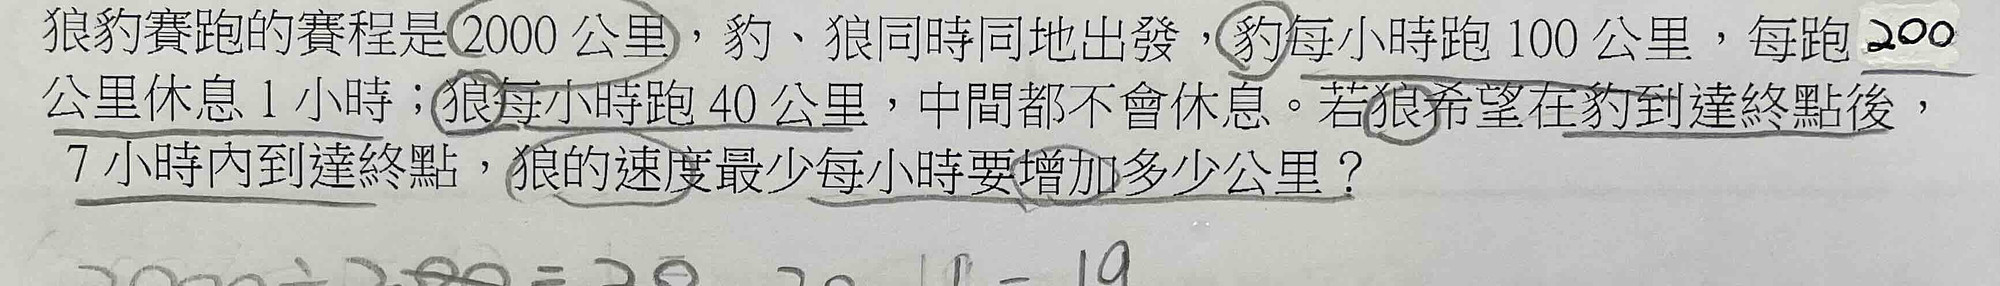 狼豹賽跑的賽程是2000公里，豹、狼同時同地出發，豹每小時跑100公里，每跑200
公里休息1小時；狼每小時跑40公里，中間都不會休息。若狼希望在豹到達終點後，
7小時內到達終點，狼的速度最少每小時要增加多少公里？
= 19